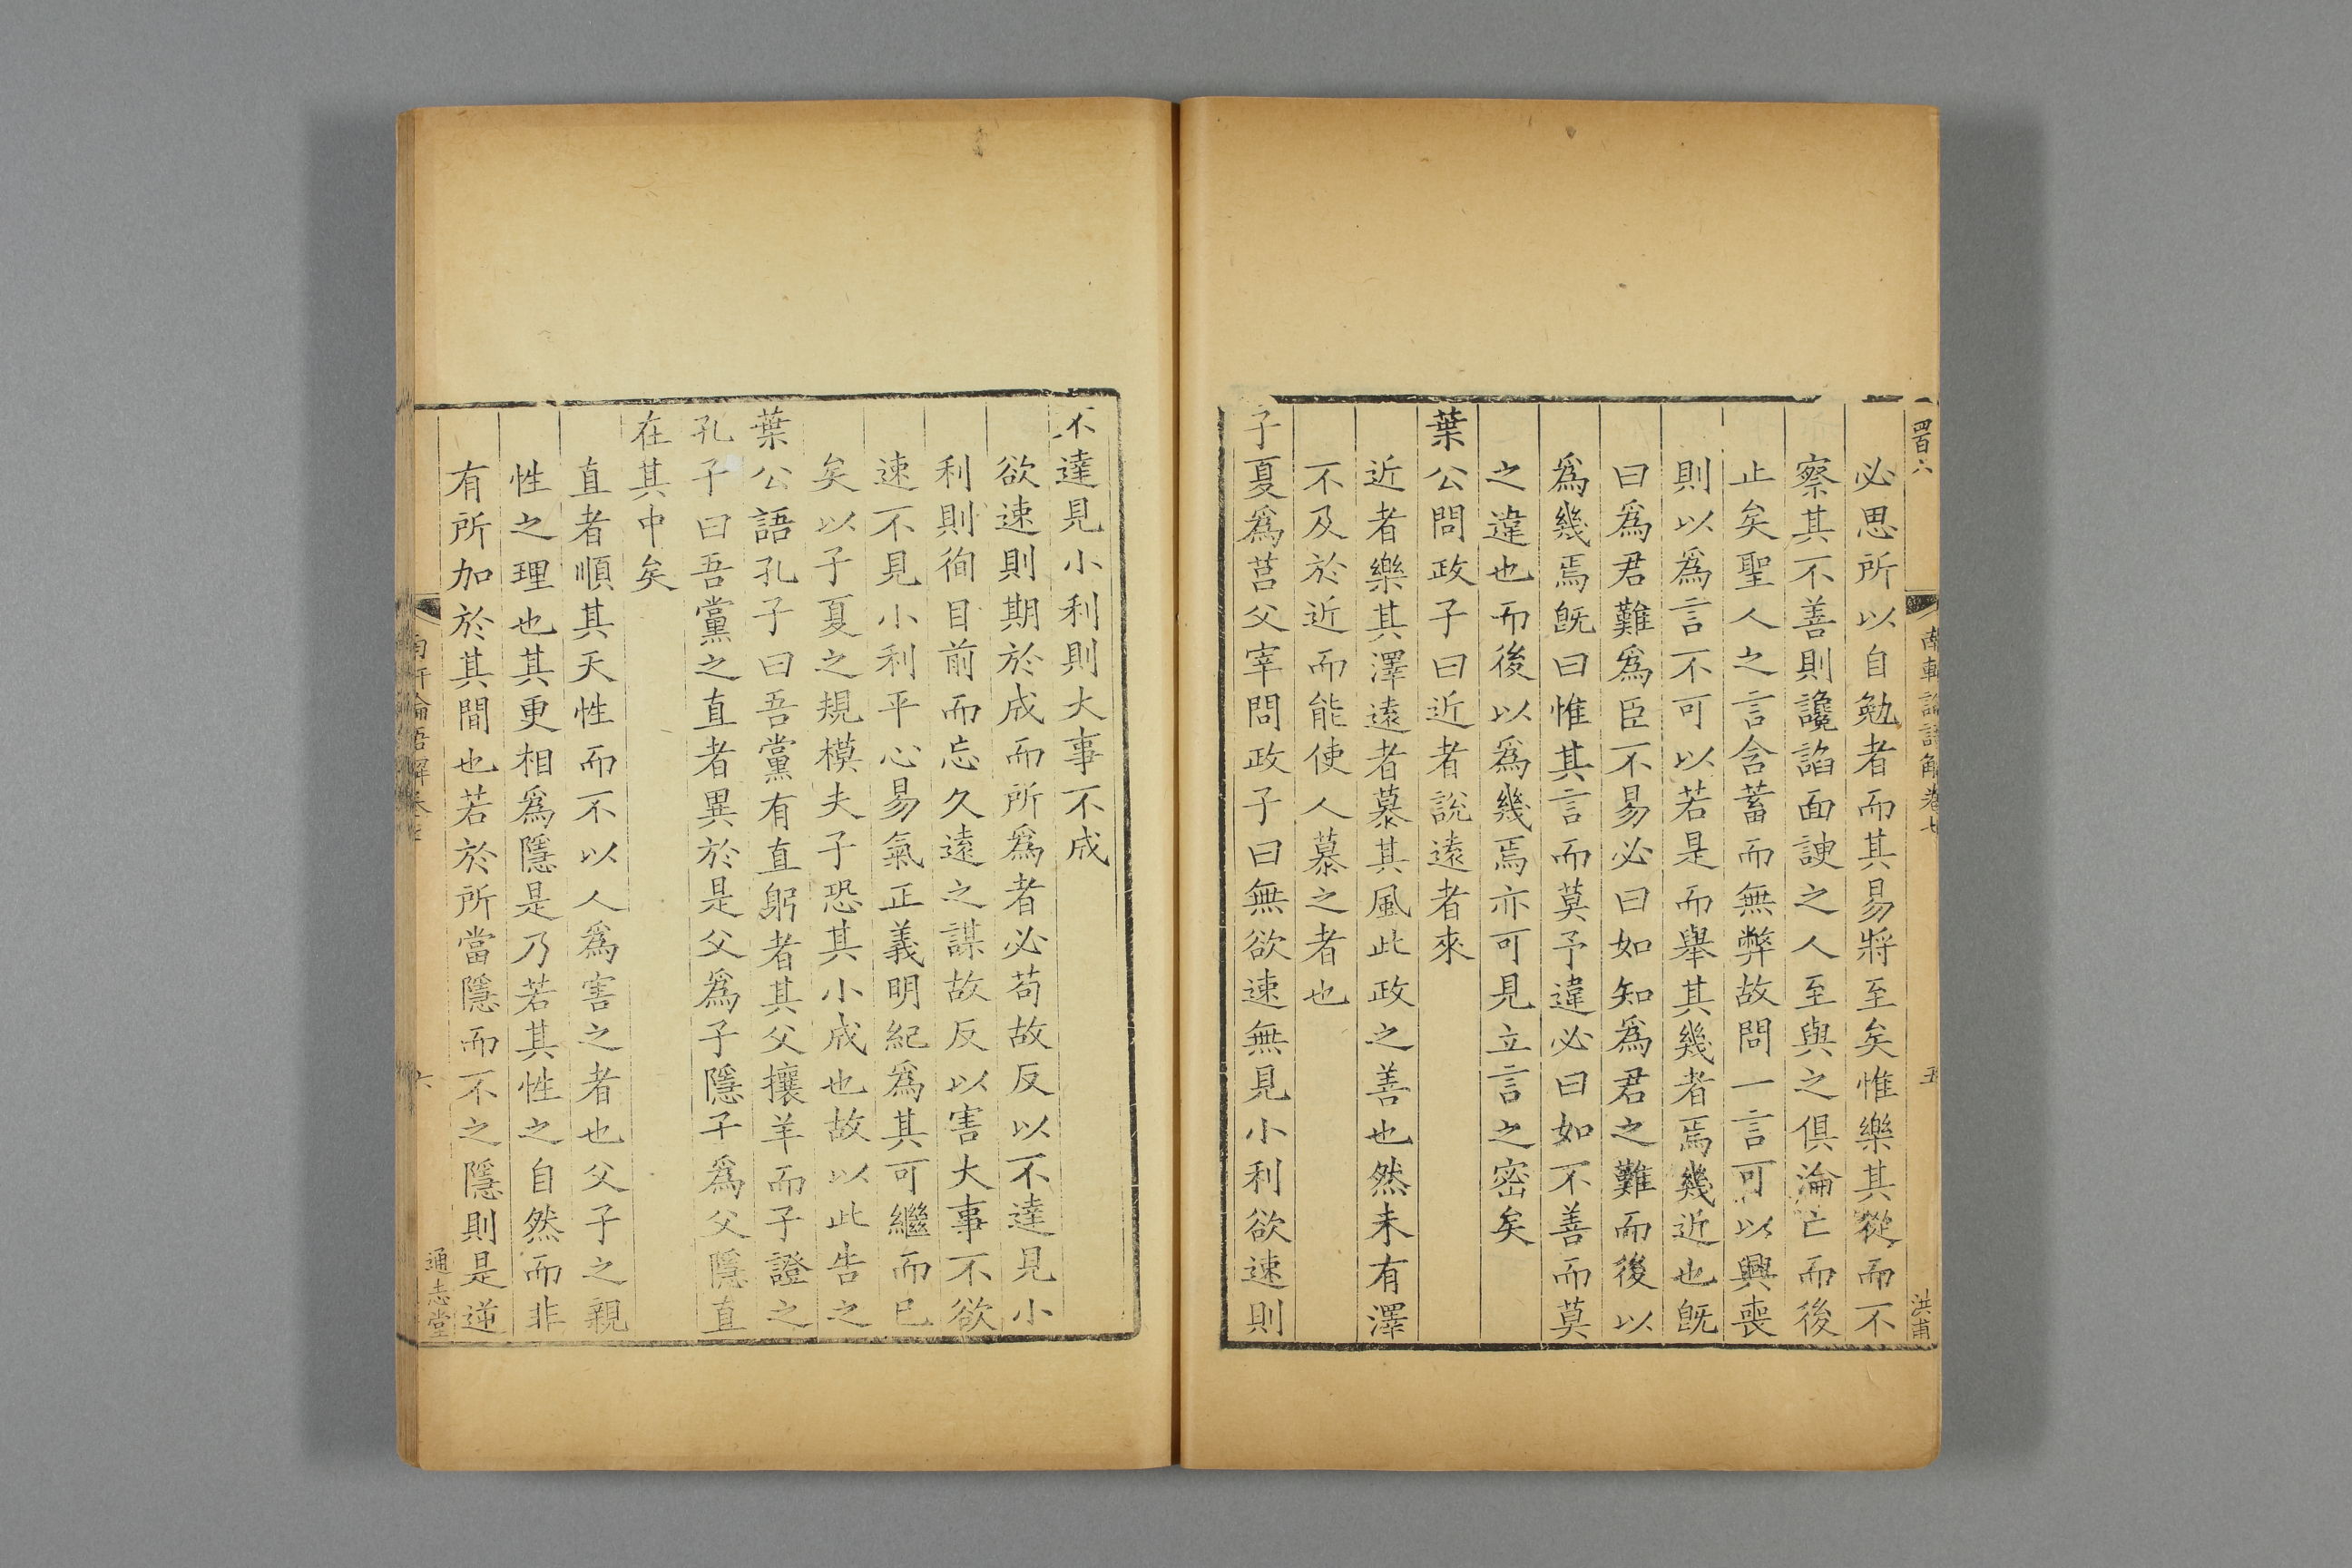 四百六
南軒論語解卷七
五
洪甫
必思所以自勉者而其易將至矣惟樂其從而不
察其不善則讒諂面諛之人至與之俱淪亡而後
止矣聖人之言含蓄而無弊故問一言可以興喪
則以爲言不可以若是而舉其幾者焉幾近也旣
曰爲君難爲臣不易必曰如知爲君之難而後以
爲幾焉旣曰惟其言而莫予違必曰如不善而莫
之違也而後以爲幾焉亦可見立言之密矣
葉公問政子曰近者說遠者來
近者樂其澤遠者慕其風此政之善也然未有澤
不及於近而能使人慕之者也
子夏爲莒父宰問政子曰無欲速無見小利欲速則
不達見小利則大事不成
欲速則期於成而所爲者必苟故反以不達見小
利則徇目前而忘久遠之謀故反以害大事不欲
速不見小利平心易氣正義明紀爲其可繼而已
矣以子夏之規模夫子恐其小成也故以此告之
葉公語孔子曰吾黨有直躬者其父攘羊而子證之
孔子曰吾黨之直者異於是父爲子隱子爲父隱直
在其中矣
直者順其天性而不以人爲害之者也父子之親
性之理也其更相爲隱是乃若其性之自然而非
有所加於其間也若於所當隱而不之隱則是逆
南軒論語解卷七
六
通志堂